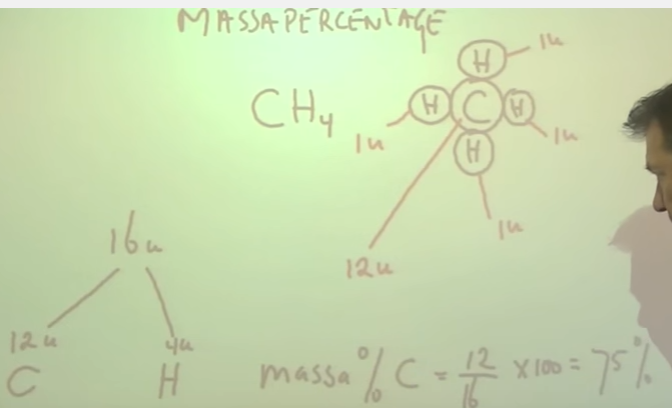 MASSAPERCENTAGE
H 1u
CH4 H C H
1u 1u
H
1u
16u
12u
12u 4u
C H
massa% C = 12/16 x100 = 75%